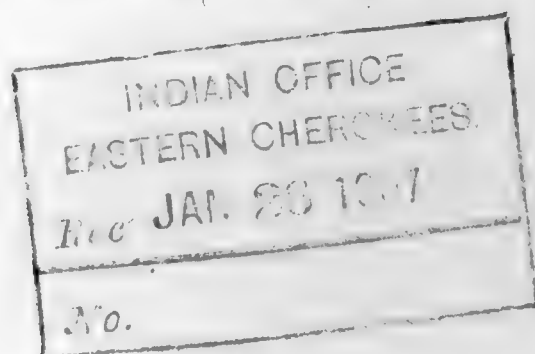 INDIAN OFFICE
EASTERN CHEROKEES.
Rec JAN.
No.